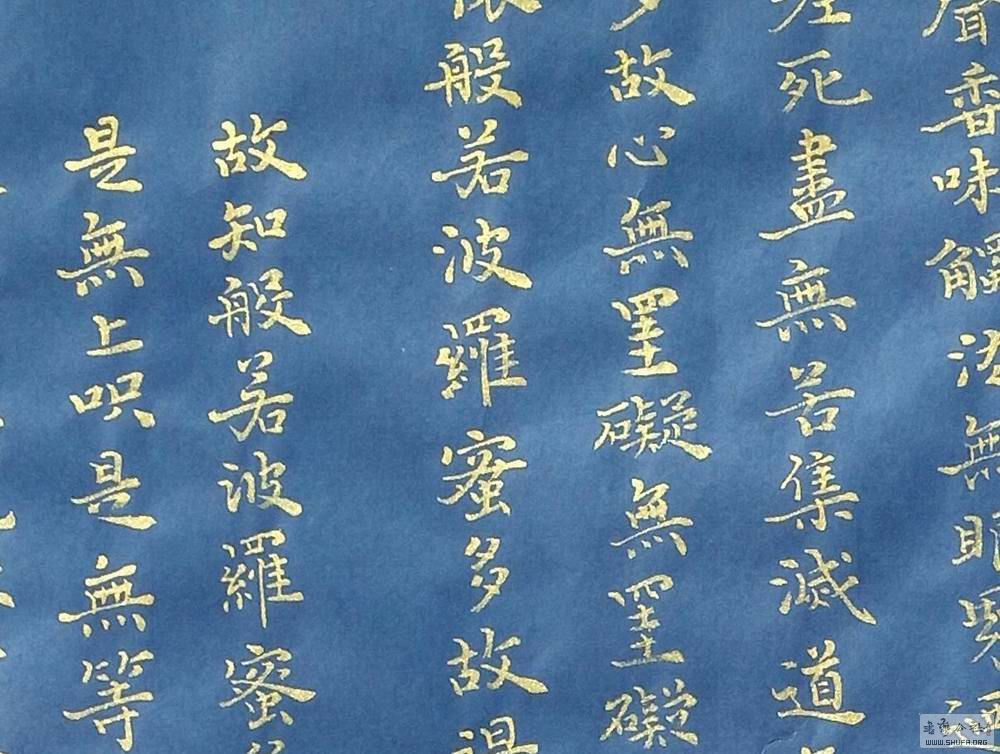 聲香味觸法無眼界
老死盡無苦集滅道
多故心無罣礙無罣礙
依般若波羅蜜多故得
故知般若波羅蜜多
是無上呪是無等
WWW.SHUFA.ORG